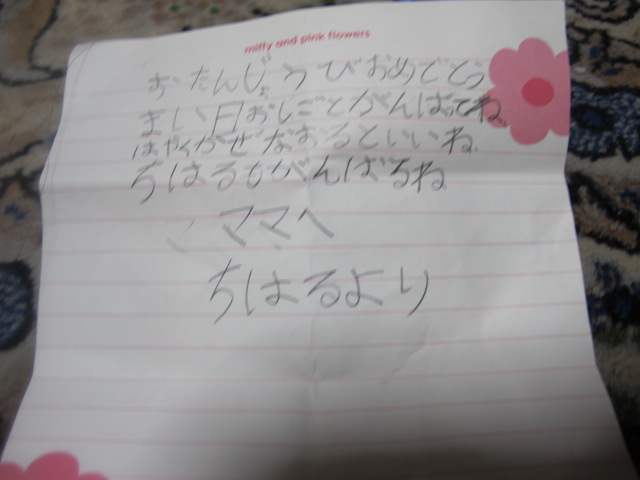 miffy and pink flowers
おたんじょうびおめでとう
まい日おしごとがんばってね。
はやくかぜなおるといいね。
ちはるもがんばるね
ママへ
ちはるより